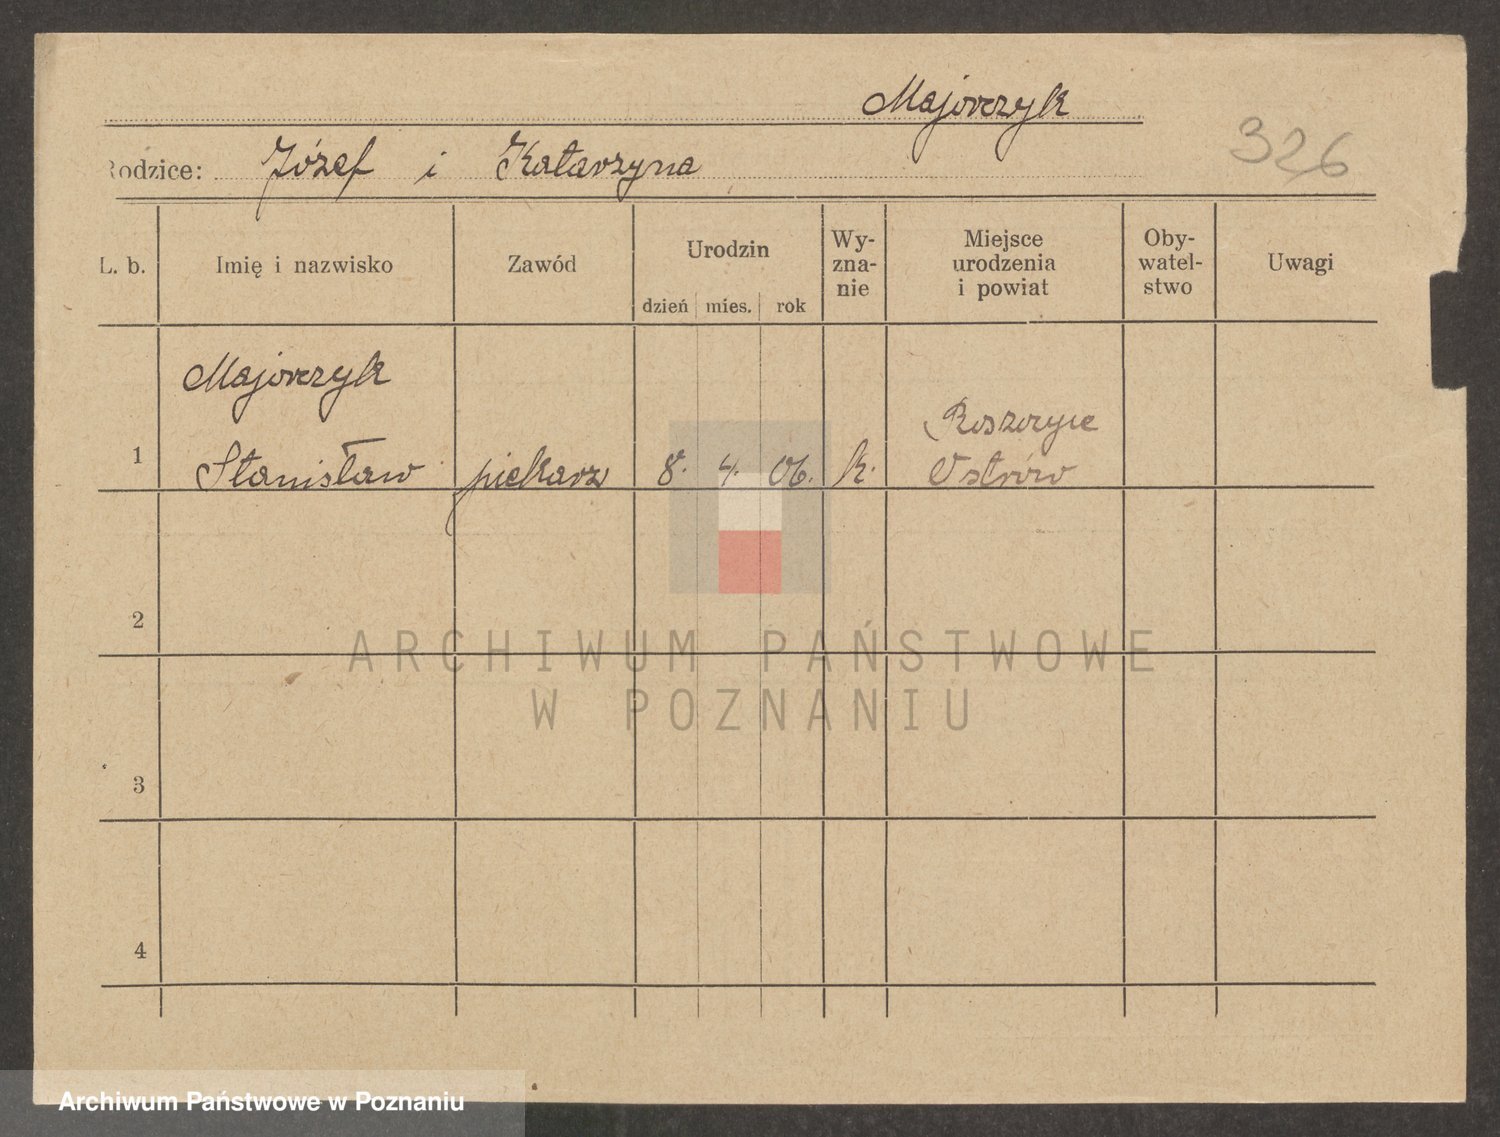 Majorczyk
326
Rodzice: Józef i Katarzyna
L. b. Imię i nazwisko Zawód Urodzin dzień mies. rok Wy-zna-nie Miejsce urodzenia i powiat Oby-watel-stwo Uwagi
Majorczyk
Roszoryce
1 Stanisław piekarz 8. 4. 06. k. Ostrów
2
ARCHIWUM PAŃSTWOWE
W POZNANIU
3
4
Archiwum Państwowe w Poznaniu